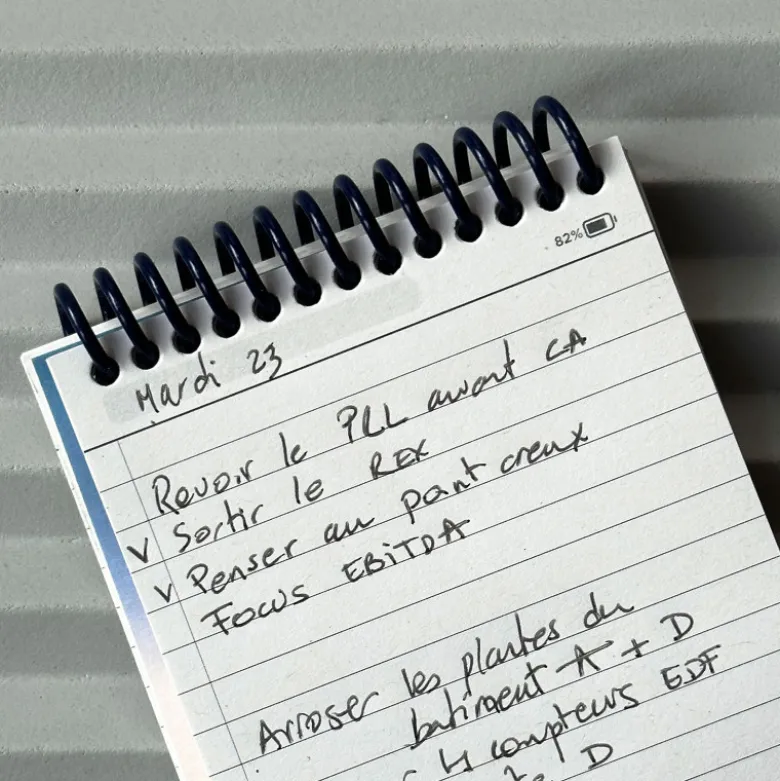 82%
Mardi 23
Revoir le PLL avant CA
V Sortir le REX
V Penser au point creux
Focus EBITDA
Arroser les plantes du
batiment A + D
compteurs EDF
D